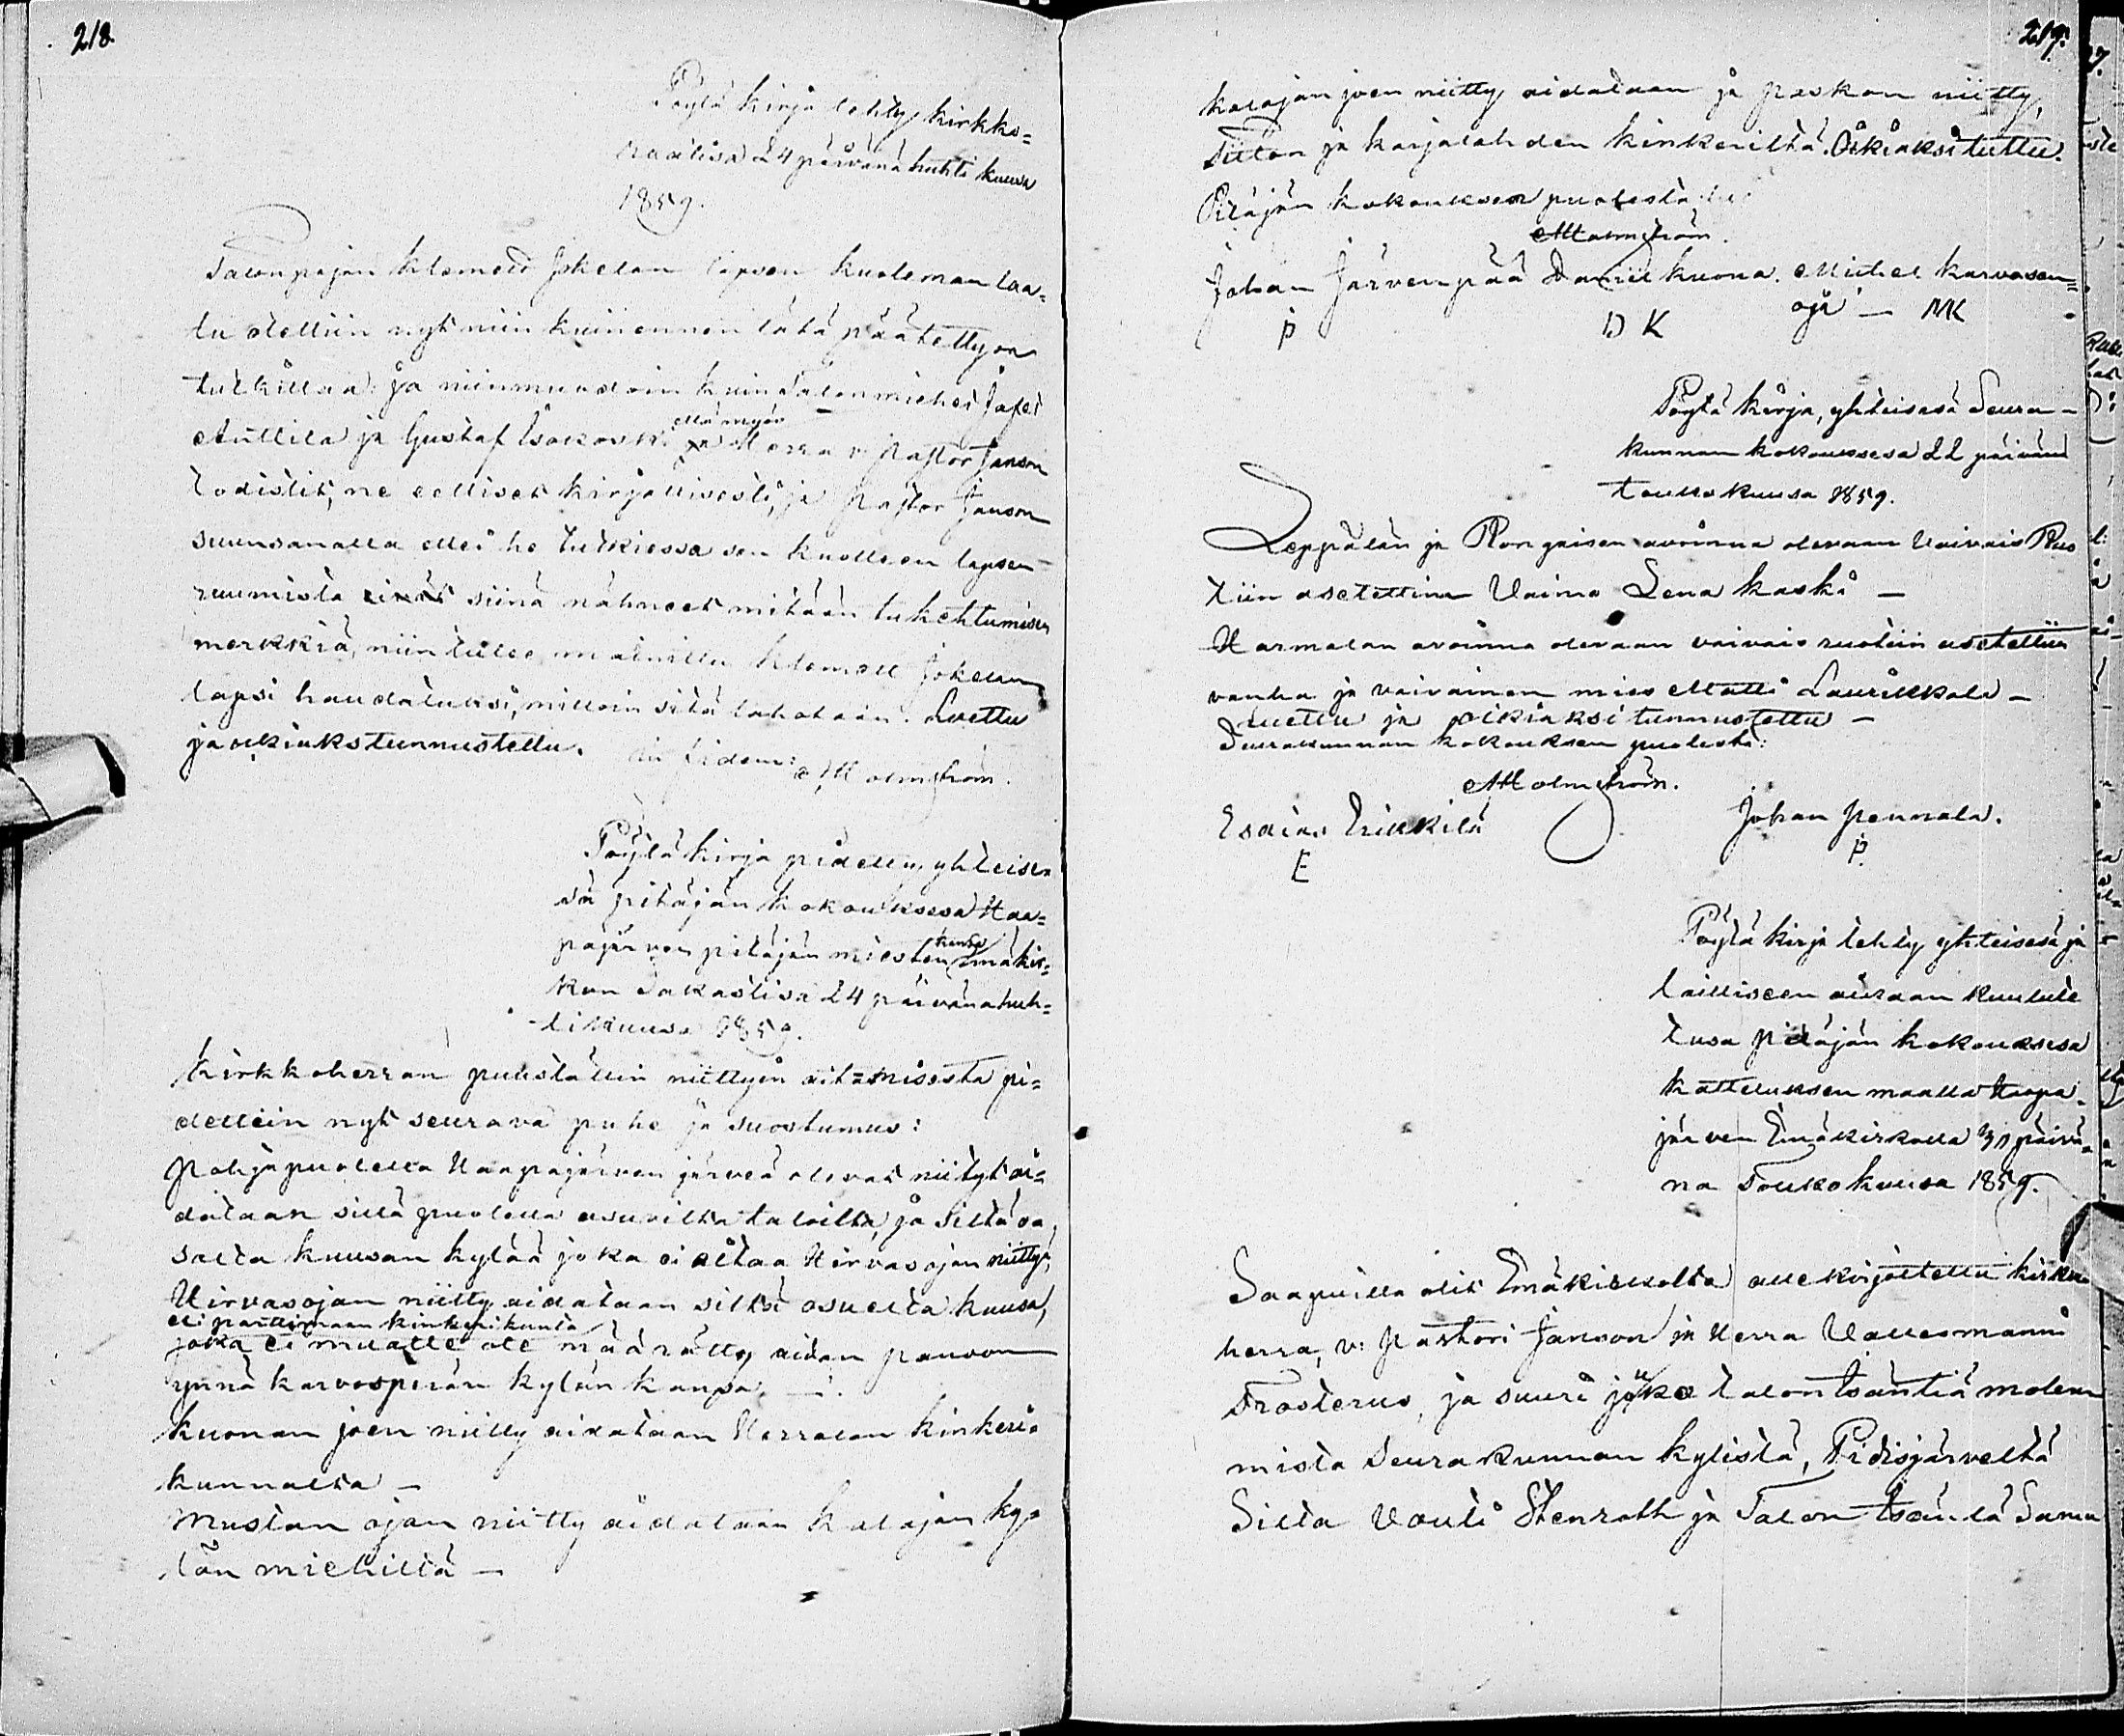 218.
Pöytä kirja tehty kirkko=
raatisa 24 päivänä huhti kuusa
1859.
Talonpojan Klemeti Jokelan lapsen kuoleman laa=
tu otettiin nyt niin kuin ennen tätä päätetty on
tutkittaa: ja niinmuodoin kuin Talon miehet Jafet
Anttila ja Gustaf Isokoski ja että myös Herra v. Pastor Janson
todistit, ne edelliset kirjallisesti, ja Pastor Janson
suunsanalla ettei he tutkiessa sen kuolleen lapsen
ruumista siinä nähneet mitään tukehtumisen
merkkiä, niin tulee mainittu Klemett Jokelan
lapsi haudatuksi, milloin sitä tahotaan. Luettu
ja oikiaks tunnustettu. in fidem:
Malmström.
Pöytä kirja pidetty yhteises
sä pitäjän kokouksesa Haa=
pajärven pitäjän miesten kansa Emäkir=
kon Sakastisa 24 päivänä huh=
tikuusa 1859.
Kirkkoherran puuställin niittyin aitamisesta pi=
dettiin nyt seurava puhe ja suostumus:
Pohjapuolella Haapajärven järveä olevat niityt ai=
dataan sillä puolella asuvilta taloilta, ja siltä o
salta Kuusan kylää joka ei aitaa Hirvasojan niittyä,
Hirvasojan niitty aidataan siltä osuelta Kuusa,
eli parttimaan kinkerikunta
joka ei mualle ole määrätty aidan panoon
ynnä Karvosperän kylän kansa. —
Kuonan joen niitty aidataan Herralan kinkeri=
kunnalta —
Mustan ojan niitty aidataan Kalajan ky=
län miehiltä —
219.
Kalajan joen niitty aidataan ja paskan niitty,
Tiiton ja Karjalahden kinkeriltä. Oikiaksi tuttu.
Pitäjän kokouksen puolesta
Malmström.
Johan Järvenpää Daniel Kuona. Michel Karvosen=
P D K oja — MK
Pöytä kirja, yhteisesä Seura=
kunnan kokouksesa 22 päivänä
toukokuusa 1859.
Leppälän ja Ronkaisen avoinna olevaan Vaivais Ruo
tiin asetettiin Vaimo Lena Kaski —
Harmalan avoinna olevaan vaivais ruotiin asetettiin
vanha ja vaivainen mies Matti Laurikkala —
Luettu ja oikiaksi tunnustettu —
Seurakunnan kokouksen puolesta:
Malmström.
Esaias Erikkilä Johan Pennala.
E P.
Pöytä kirja tehty yhteisesä ja
lailliseen aikaan kuulute
tusa pidäjän kokouksesa
katteluksen maalla Haapa=
järven Emäkirkolla 30 päivä=
nä Toukokuusa 1859.
Saapuilla olit Emäkirkolta allekirjoitettu kirkko
herra, v: Pastori Janson ja Herra Vallesmanni
Frosterus, ja suuri joukko talon isäntiä molem
mista Seurakunnan kylistä, Pidisjärveltä
Silta Vouti Stenroth ja Talon isäntä Samu